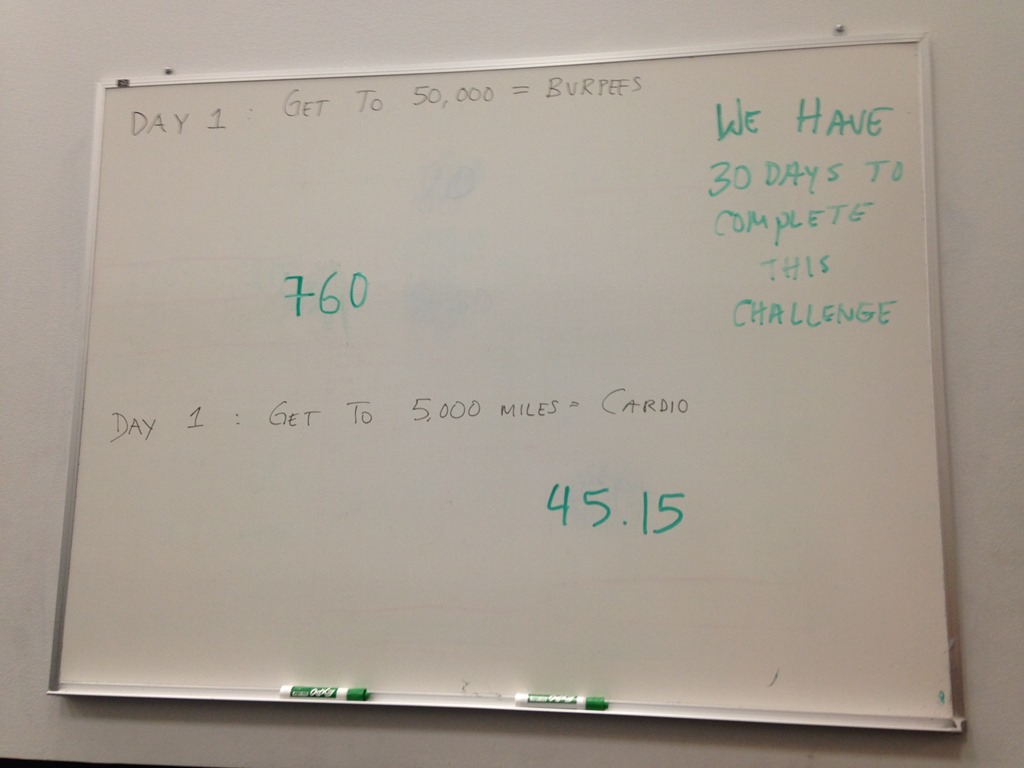 DAY 1 : GET TO 50,000 = BURPEES
WE HAVE
30 DAYS TO
COMPLETE
THIS
CHALLENGE
760
DAY 1 : GET TO 5,000 MILES = CARDIO
45.15
EXPO
EXPO